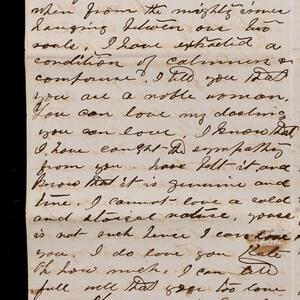 when from the mighty
hanging between our two
souls. I have extracted a
condition of calmness &
composure. I tell you that
you are a noble woman.
You can love my darling
you can love. I know that
I have caught the sympathy
from you, have felt it and
know that it is genuine and
true. I cannot love a cold
and stoical nature, yours
is not such hence I can love
you, I do love you Kate
Oh how much. I can
full well that you too love